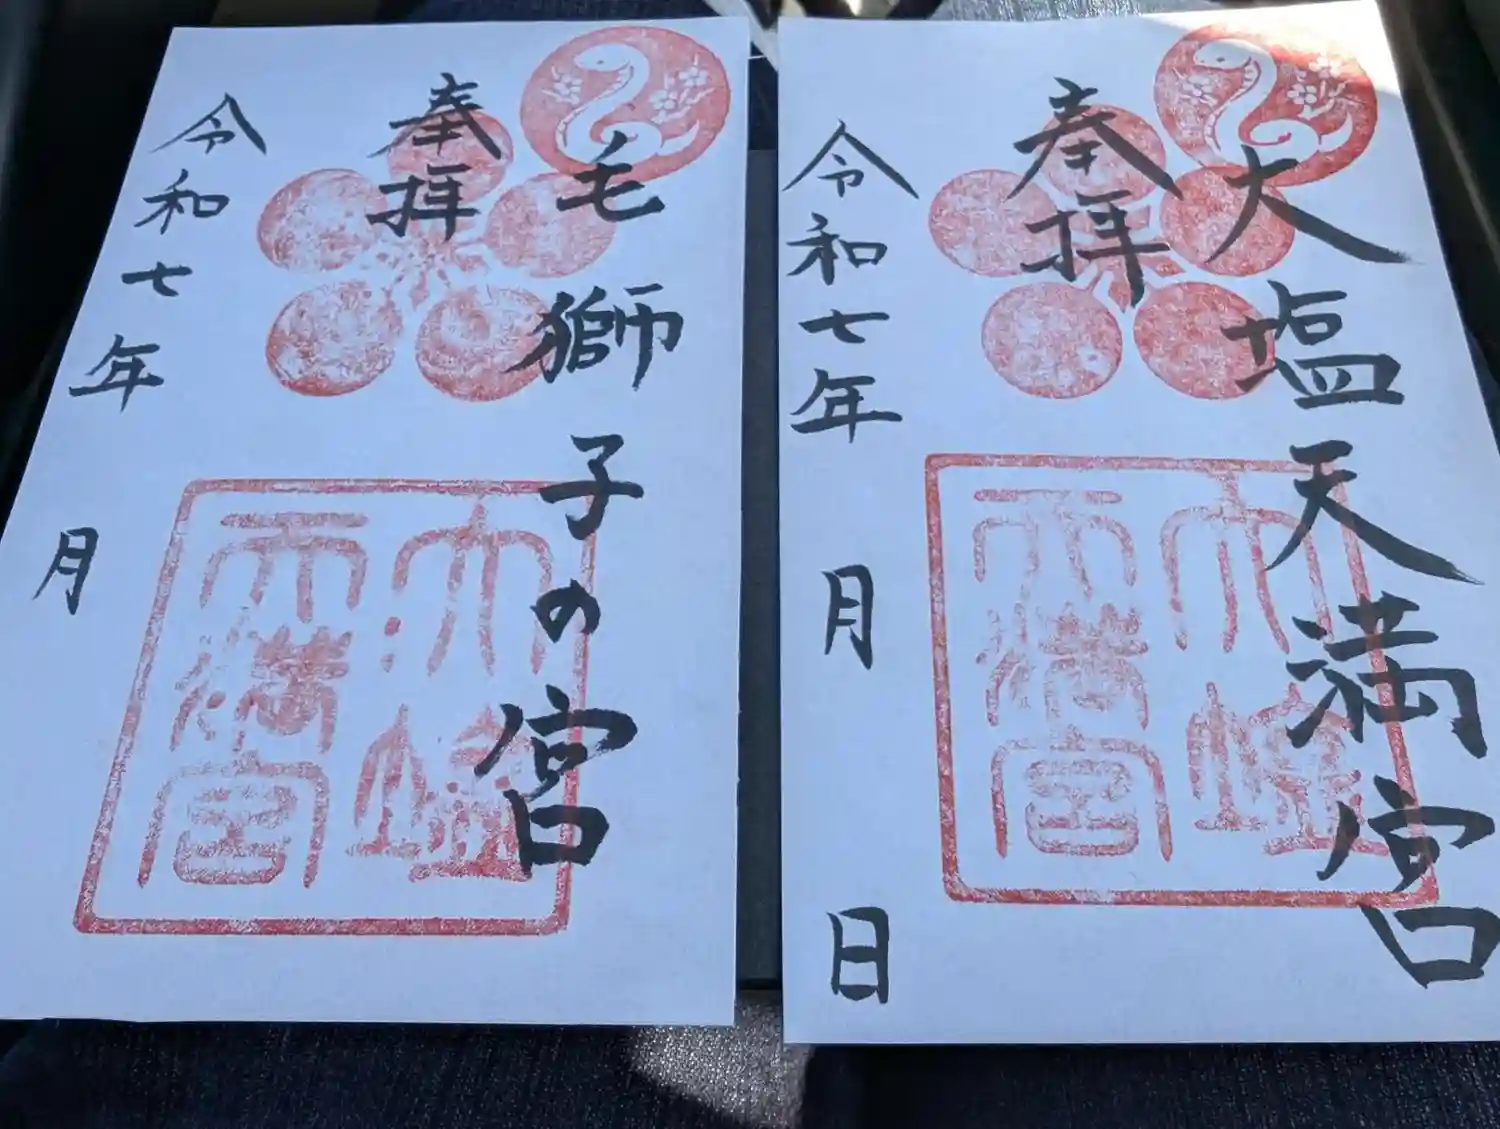 奉拝
毛獅子の宮
令和七年 月
大塩天満宮
奉拝
大塩天満宮
令和七年 月 日
大塩天満宮